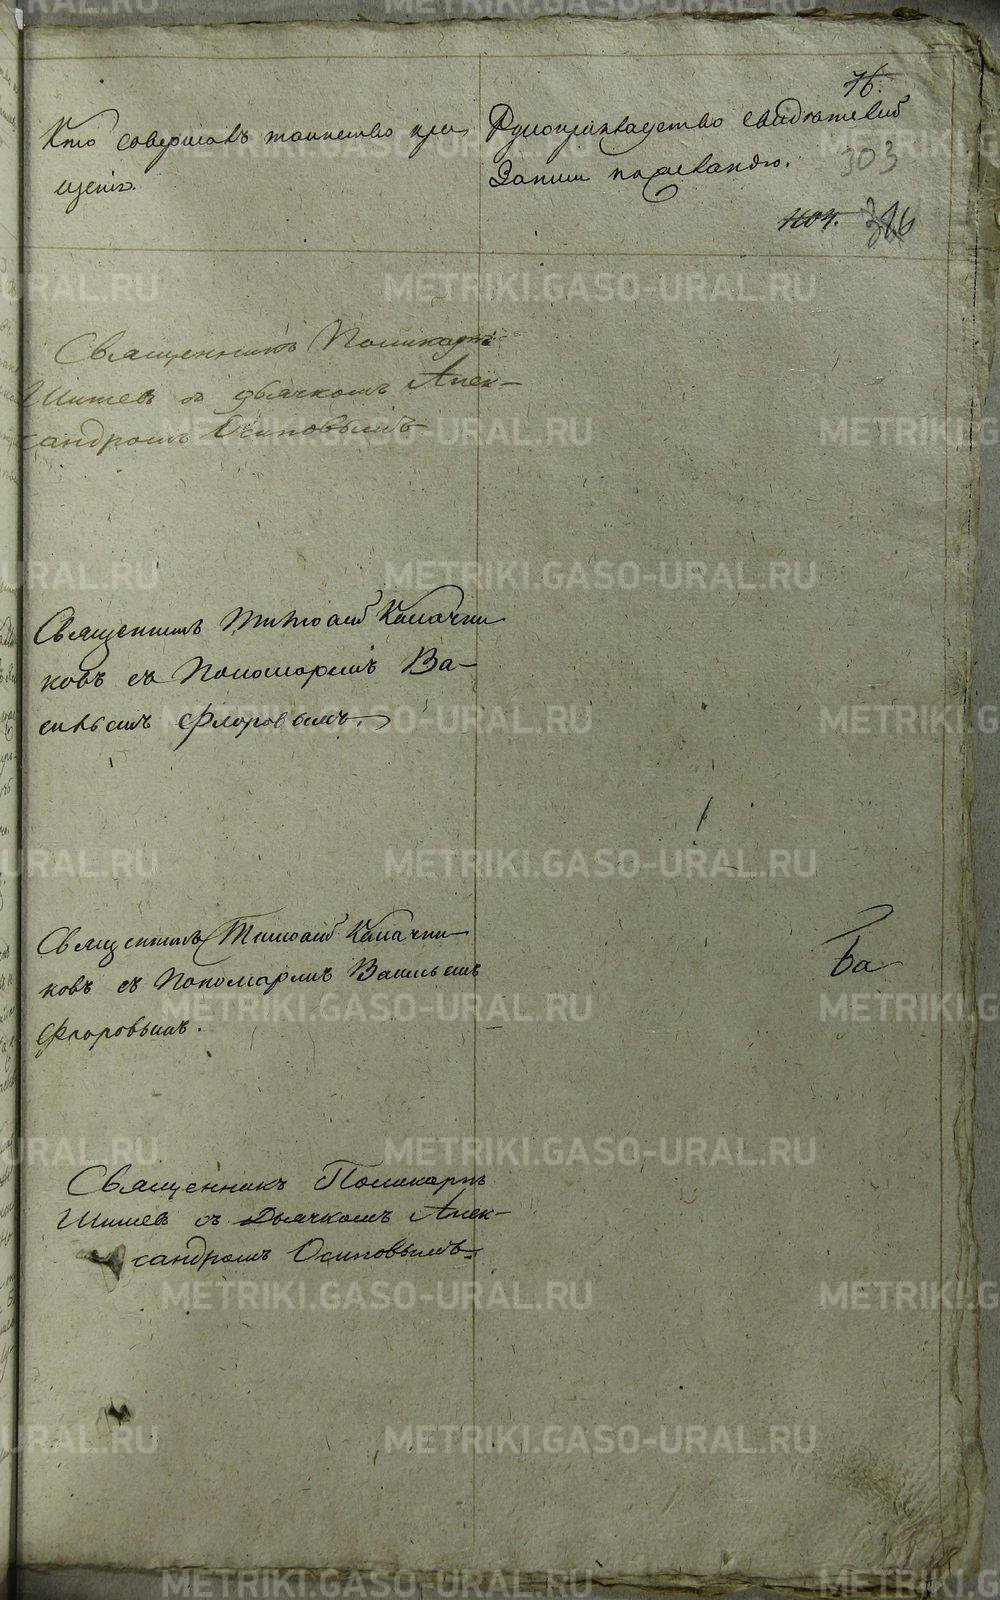 76.
Кто совершалъ таинство кре
щенія.
Рукоприкладство свидѣтелей
записи по желанію.
303
404. 316
Священникъ Поликарпъ
Шишев съ дьячкомъ Алек-
сандромъ Осиповымъ
Священникъ Тимоѳей Калачни
ковъ съ Пономаремъ Ва-
сильемъ Флоровымъ.
Священникъ Тимоѳей Калачни
ковъ съ Пономаремъ Васильемъ
Флоровымъ.
Ба
Священникъ Поликарпъ
Шишев съ Дьячкомъ Алек-
сандромъ Осиповымъ
METRIKI.GASO-URAL.RU